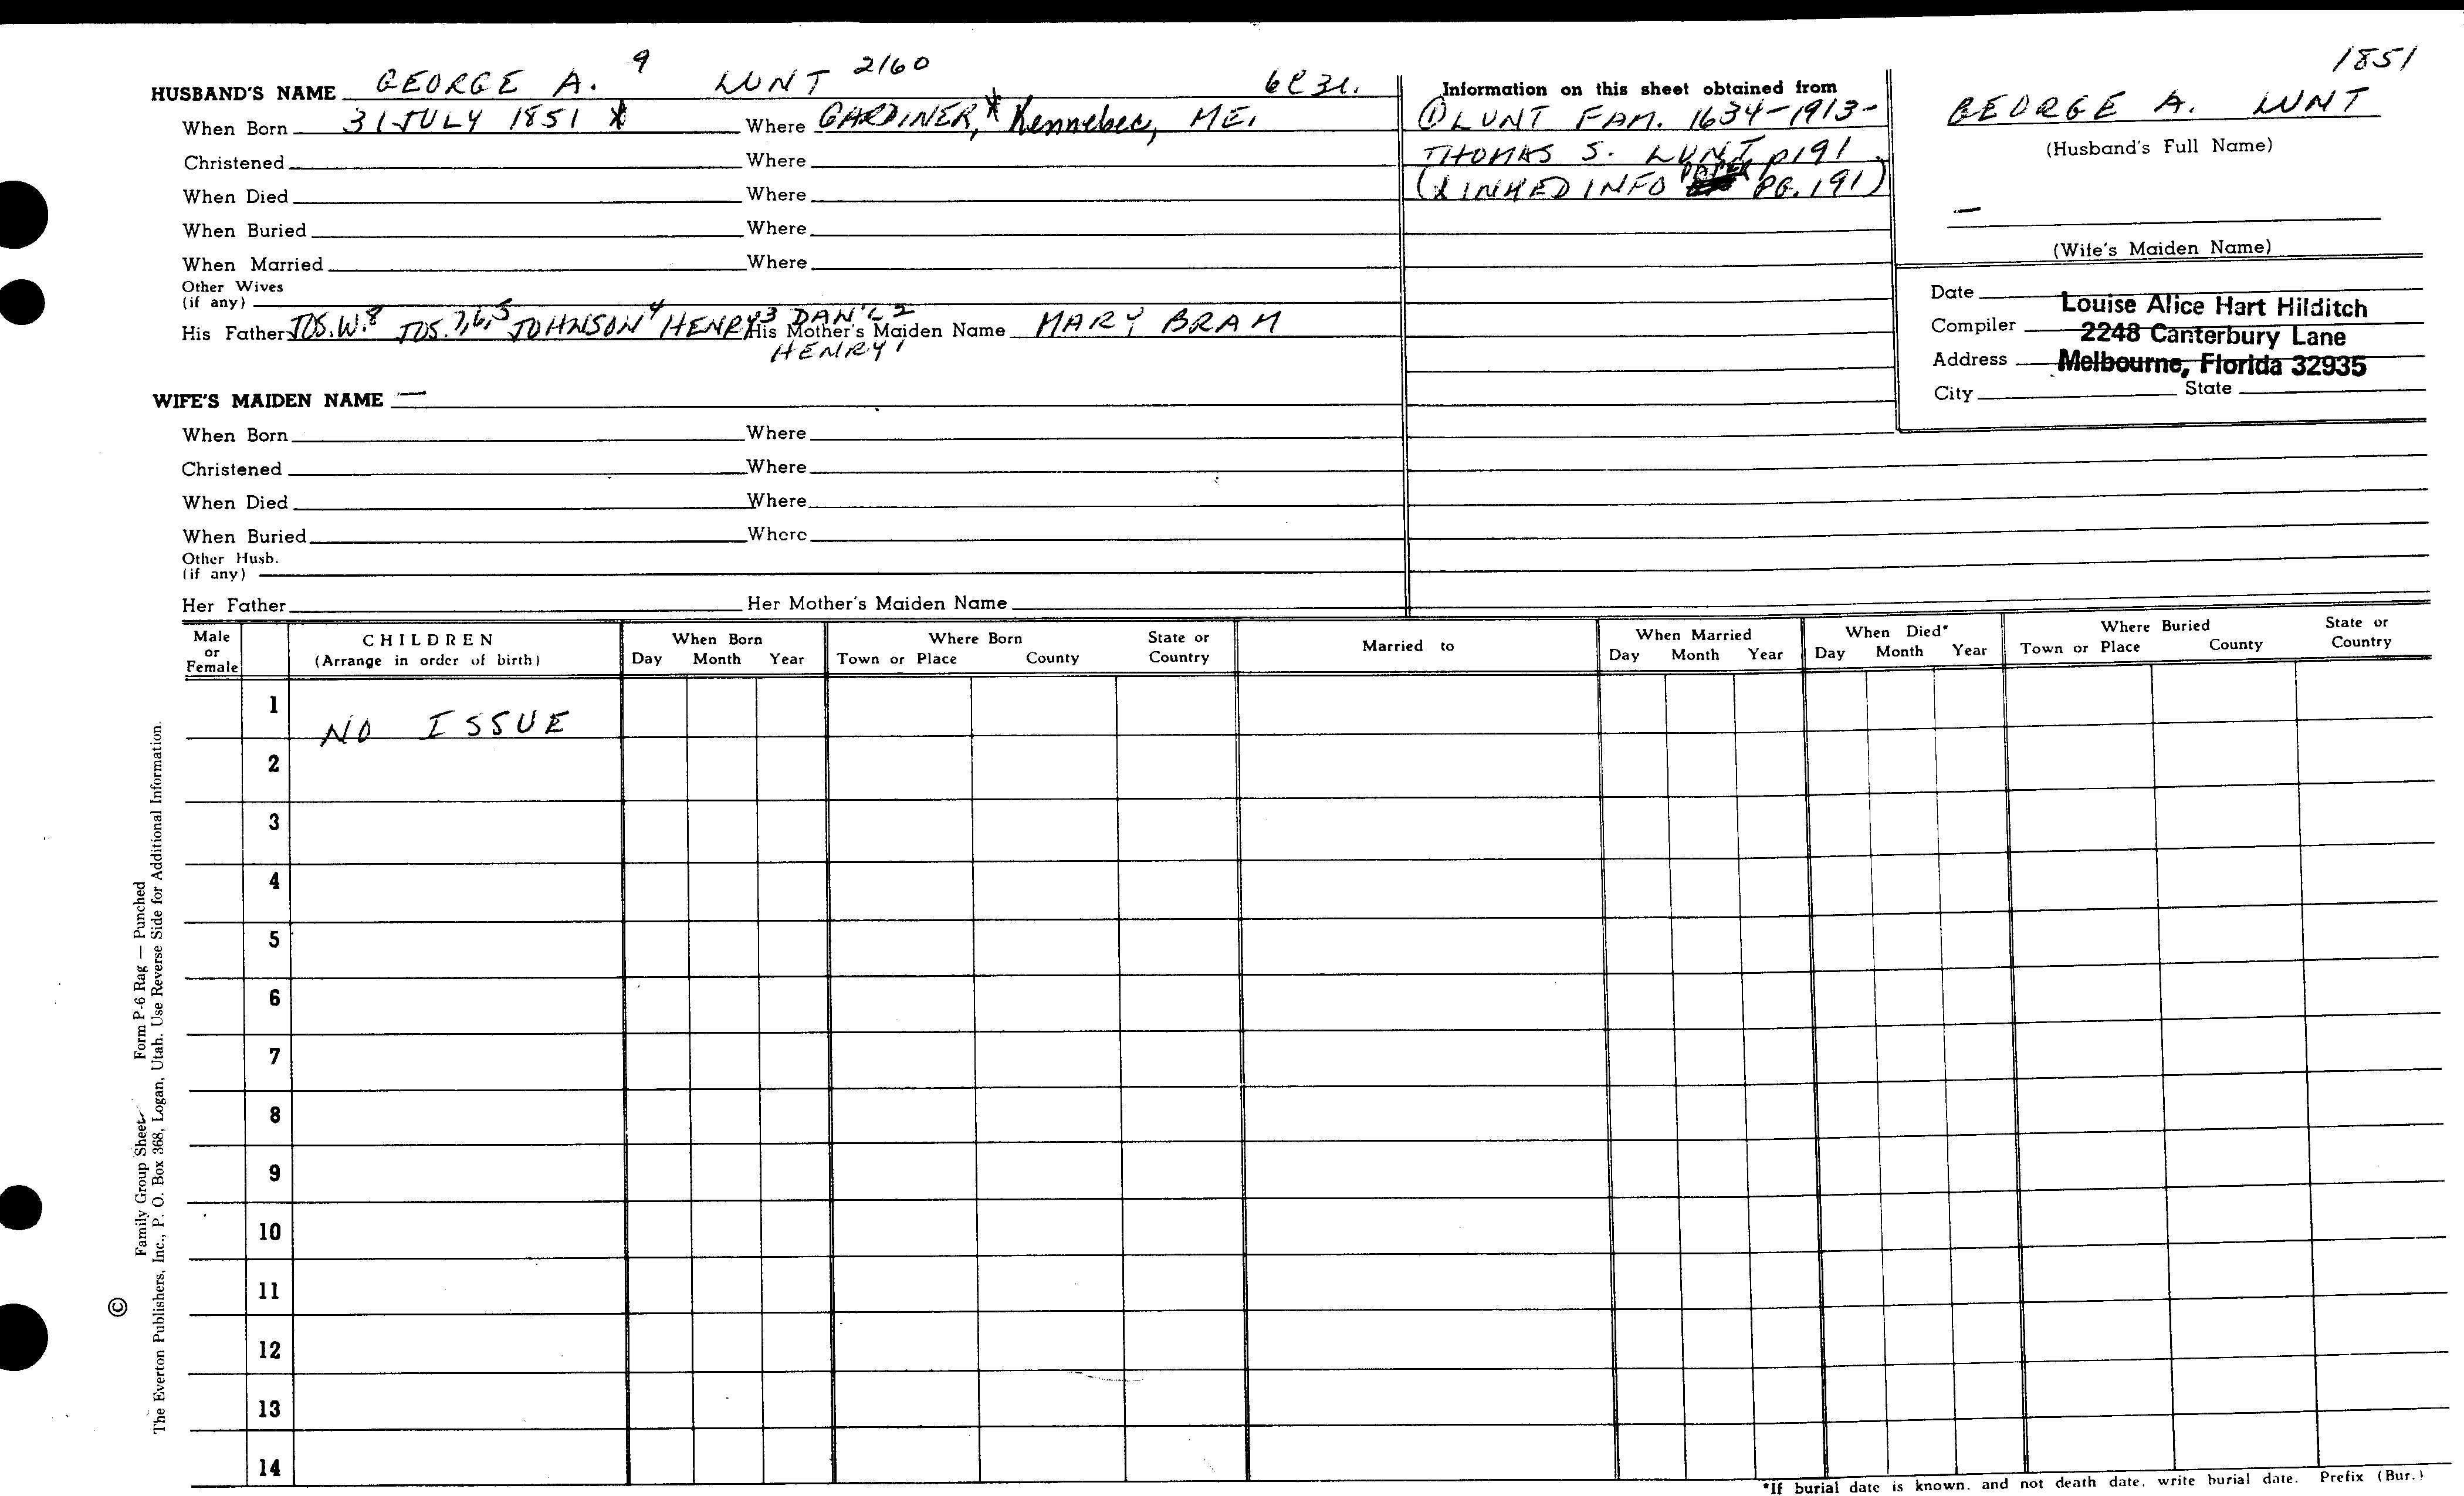 1851
HUSBAND'S NAME GEORGE A. 9 LUNT 2160
When Born 31 JULY 1851 * Where GARDINER,* Kennebec, ME.
Christened Where
When Died Where
When Buried Where
When Married Where
Other Wives
(if any)
His Father JOS. W.8 JOS. 7,6,5 JOHNSON 4 HENRY 3 DAN'L 2 His Mother's Maiden Name MARY BRAM
HENRY 1
WIFE'S MAIDEN NAME —
When Born Where
Christened Where
When Died Where
When Buried Where
Other Husb.
(if any)
Her Father Her Mother's Maiden Name
Information on this sheet obtained from
① LUNT FAM. 1634-1913-
THOMAS S. LUNT p191
(LINKED INFO PG. 191)
GEORGE A. LUNT
(Husband's Full Name)
—
(Wife's Maiden Name)
Date
Compiler
Address
City State
Louise Alice Hart Hilditch
2248 Canterbury Lane
Melbourne, Florida 32935
Male or Female CHILDREN (Arrange in order of birth) When Born Day Month Year Where Born Town or Place County State or Country Married to When Married Day Month Year When Died* Day Month Year Where Buried Town or Place County State or Country
1 NO ISSUE
2
3
4
5
6
7
8
9
10
11
12
13
14
*If burial date is known, and not death date, write burial date. Prefix (Bur.)
Family Group Sheet Form P-6 Rag — Punched
© The Everton Publishers, Inc., P. O. Box 368, Logan, Utah. Use Reverse Side for Additional Information.